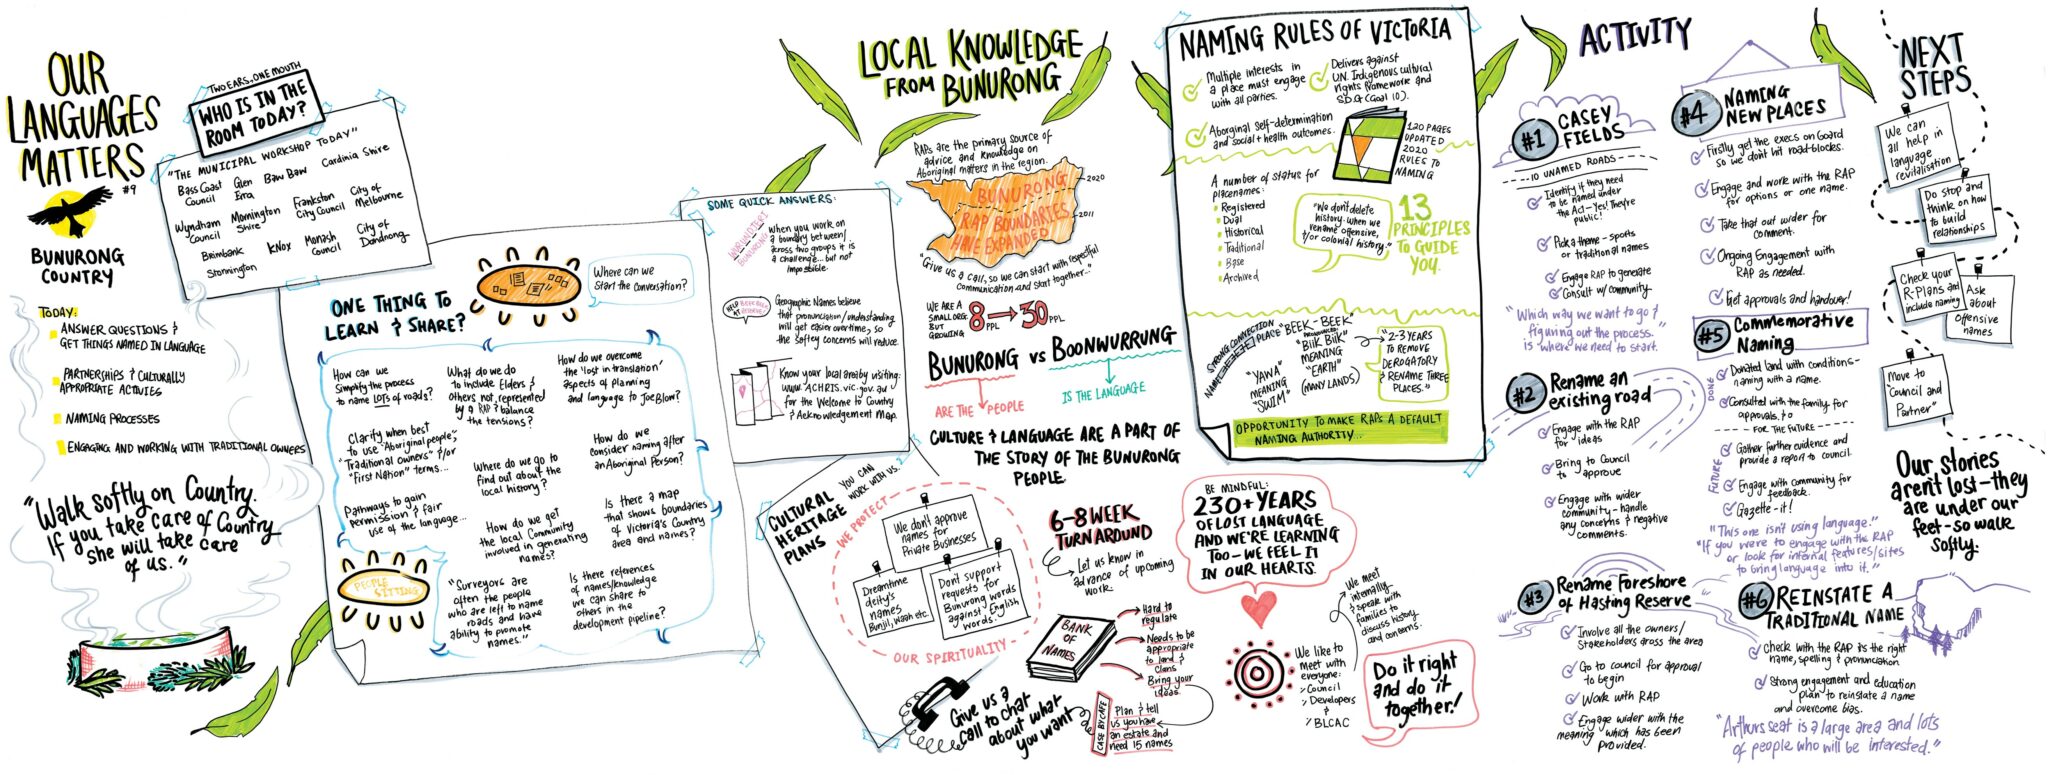 OUR
LANGUAGES
MATTERS
#9
BUNURONG
COUNTRY
TODAY:
ANSWER QUESTIONS &
GET THINGS NAMED IN LANGUAGE
PARTNERSHIPS & CULTURALLY
APPROPRIATE ACTIVIES
NAMING PROCESSES
ENGAGING AND WORKING WITH TRADITIONAL OWNERS
"Walk softly on Country.
If you take care of Country
she will take care
of us."
TWO EARS, ONE MOUTH
WHO IS IN THE
ROOM TODAY?
"THE MUNICIPAL WORKSHOP TODAY"
Bass Coast
Council
Glen
Eira
Baw Baw
Cardinia Shire
Wyndham
Council
Mornington
Shire
Frankston
City Council
City of
Melbourne
Brimbank
Knox
Monash
Council
City of
Dandnong
Stonnington
ONE THING TO
LEARN & SHARE?
Where can we
start the conversation?
How can we
simplify the process
to name LOTS of roads?
What do we do
to include Elders &
others not represented
by a RAP & balance
the tensions?
How do we overcome
the 'lost in translation'
aspects of planning
and language to Joe Blow?
Clarify when best
to use "Aboriginal people",
"Traditional owners" &/or
"First Nation" terms...
Where do we go to
find out about the
local history?
How do we
consider naming after
an Aboriginal Person?
Pathways to gain
permission & fair
use of the language...
How do we get
the local Community
involved in generating
names?
Is there a map
that shows boundaries
of Victoria's Country
area and names?
PEOPLE
SITTING
"Surveyors are
often the people
who are left to name
roads and have
ability to promote
names."
Is there references
of names/knowledge
we can share to
others in the
development pipeline?
SOME QUICK ANSWERS:
WURUNDJERI
BUNURONG
When you work on
a boundary between/
across two groups it is
a challenge... but not
impossible.
HELP BEEK BEEK
AT RESERVE!
Geographic Names believe
that pronunciation/understanding
will get easier overtime, so
the saftey concerns will reduce.
Know your local area by visiting:
www.ACHRIS.vic.gov.au
for the Welcome to Country
& Acknowledgement Map.
CULTURAL
HERITAGE
PLANS
YOU CAN
WORK WITH US.
WE PROTECT
We don't approve
names for
Private Businesses
Dreamtime
deity's
names
Bunjil, Waah etc.
Don't support
requests for
Bunurong words
against English
words.
OUR SPIRITUALITY
Give us a
call to chat
about what
you want
LOCAL KNOWLEDGE
FROM BUNURONG
RAPs are the primary source of
advice and knowledge on
Aboriginal matters in the region.
BUNURONG
RAP BOUNDARIES
HAVE EXPANDED
2020
2011
"Give us a call, so we can start with respectful
communication and start together..."
WE ARE A
SMALL ORG.
BUT
GROWING
8 PPL
30 PPL
BUNURONG vs BOONWURRUNG
ARE THE PEOPLE
IS THE LANGUAGE
CULTURE & LANGUAGE ARE A PART OF
THE STORY OF THE BUNURONG
PEOPLE
6-8 WEEK
TURNAROUND
Let us know in
advance of upcoming
work.
BANK
OF
NAMES
Hard to
regulate
Needs to be
appropriate
to land &
clans
Bring your
ideas
CASE BY CASE
Plan & tell
us you have
an estate and
need 15 names
BE MINDFUL:
230+ YEARS
OF LOST LANGUAGE
AND WE'RE LEARNING
TOO - WE FEEL IT
IN OUR HEARTS.
We like to
meet with
everyone:
> Council
> Developers
&
> BLCAC
We meet
internally
& speak with
families to
discuss history
and concerns.
Do it right
and do it
together!
NAMING RULES OF VICTORIA
Multiple interests in
a place must engage
with all parties.
Delivers against
U.N. Indigenous cultural
rights framework and
S.D.G (Goal 10).
Aboriginal self-determination
and social + health outcomes.
120 PAGES
UPDATED
2020
RULES TO
NAMING
A number of status for
placenames:
Registered
Dual
Historical
Traditional
Base
Archived
"We don't delete
history when we
rename offensive,
&/or colonial history."
13
PRINCIPLES
TO GUIDE
YOU.
STRONG CONNECTION
NAME
PLACE
"YAWA"
MEANING
"SWIM"
"BEEK-BEEK"
PRONOUNCED:
"BiiK BiiK"
MEANING
"EARTH"
(MANY LANDS)
"2-3 YEARS
TO REMOVE
DEROGATORY
& RENAME THREE
PLACES."
OPPORTUNITY TO MAKE RAPs A DEFAULT
NAMING AUTHORITY...
ACTIVITY
#1 CASEY
FIELDS
10 UNAMED ROADS
Identify if they need
to be named under
the Act - Yes! They're
public!
Pick a theme - sports
or traditional names
Engage RAP to generate
Consult w/community
"Which way we want to go &
figuring out the process."
is where we need to start.
#2 Rename an
existing road
Engage with the RAP
for ideas
Bring to Council
to approve
Engage with wider
community - handle
any concerns & negative
comments.
#3 Rename Foreshore
of Hasting Reserve
Involve all the owners/
Stakeholders across the area
Go to council for approval
to begin
Work with RAP
Engage wider with the
meaning which has been
provided.
#4 NAMING
NEW PLACES
Firstly get the execs on Goard
so we don't hit road-blocks.
Engage and work with the RAP
for options or one name.
Take that out wider for
comment.
Ongoing Engagement with
RAP as needed.
Get approvals and handover!
#5 Commemorative
Naming
DONE
Donated land with conditions -
naming with a name.
Consulted with the family for
approvals, to
FOR THE FUTURE
FUTURE
Gather further evidence and
provide a report to council.
Engage with community for
feedback.
Gazette - it!
"This one isn't using language."
"If you were to engage with the RAP
or look for informal features/sites
to bring language into it."
#6 REINSTATE A
TRADITIONAL NAME
Check with the RAP its the right
name, spelling & pronunciation
Strong engagement and education
plan to reinstate a name
and overcome bias.
"Arthurs seat is a large area and lots
of people who will be interested."
NEXT
STEPS
We can
all help in
language
revitalisation
Do stop and
think on how
to build
relationships
Check your
R-Plans and
include naming
Ask
about
offensive
names
Move to
"Council and
Partner"
Our stories
aren't lost - they
are under our
feet - so walk
softly.